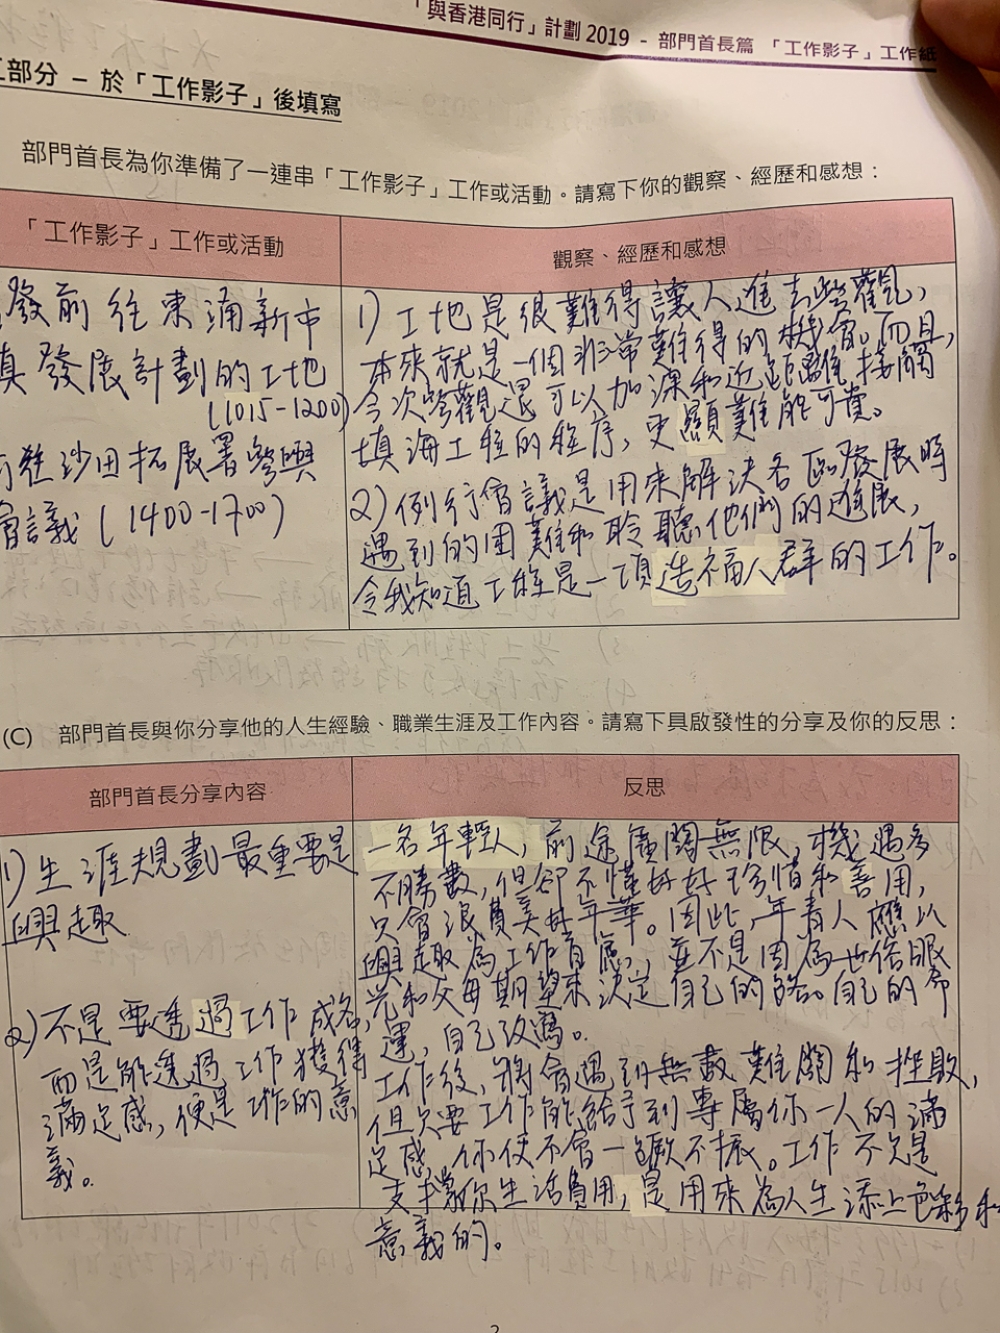 「與香港同行」計劃 2019 - 部門首長篇 「工作影子」工作紙
部分 – 於「工作影子」後填寫
部門首長為你準備了一連串「工作影子」工作或活動。請寫下你的觀察、經歷和感想：
「工作影子」工作或活動
發前往東涌新市
鎮發展計劃的工地
(1015-1200)
前往沙田拓展署參與
會議 (1400-1700)
觀察、經歷和感想
1) 工地是很難得讓人進去參觀，
本來就是一個非常難得的機會。而且，
今次參觀還可以加深和近距離接觸
填海工程的程序，更顯難能可貴。
2) 例行會議是用來解決各區發展時
遇到的困難和聆聽他們的進展，
令我知道工程是一項造福人群的工作。
(C) 部門首長與你分享他的人生經驗、職業生涯及工作內容。請寫下具啟發性的分享及你的反思：
部門首長分享內容
1) 生涯規劃最重要是
興趣
2) 不是要透過工作成名，
而是能透過工作獲得
滿足感，便是工作的意
義。
反思
一名年輕人，前途廣闊無限，機遇多
不勝數，但卻不懂好好珍惜和善用，
只會浪費美好年華。因此，年青人應以
興趣為工作首慮，並不是因為世俗眼
光和父母期望來決定自己的路。自己的命
運，自己改寫。
工作後，將會遇到無數難關和挫敗，
但只要工作能給予到專屬你一人的滿
足感，你便不會一蹶不振。工作不只是
支撐你生活費用，是用來為人生添上色彩和
意義的。
2